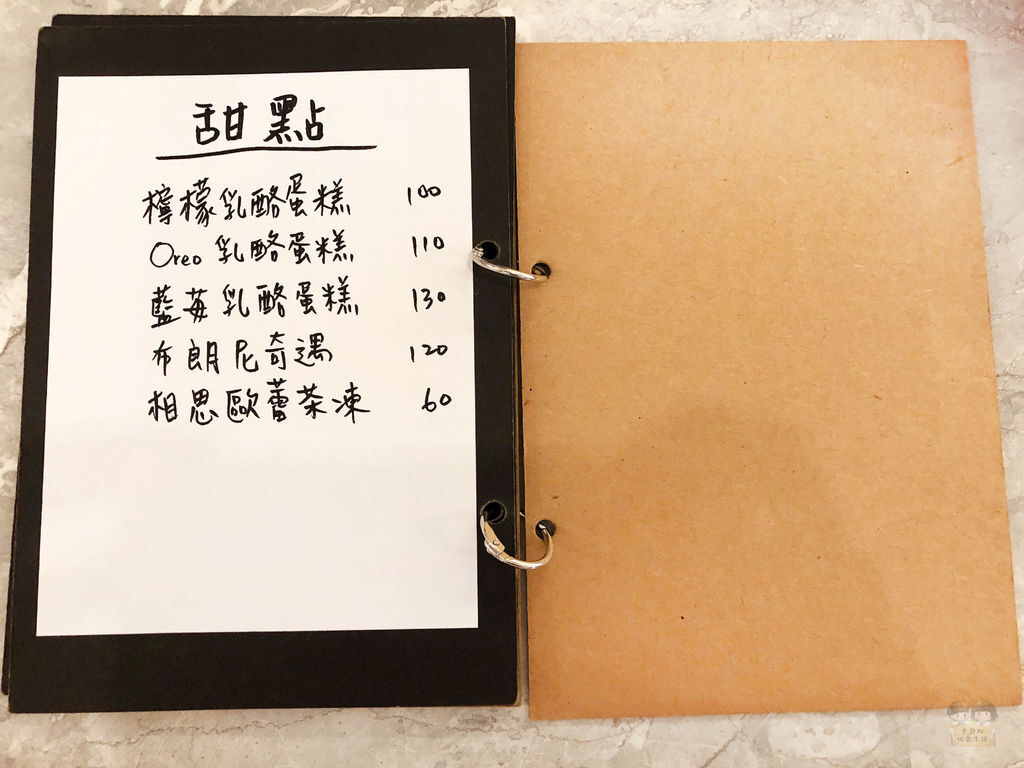 甜點
檸檬乳酪蛋糕 100
Oreo 乳酪蛋糕 110
藍莓乳酪蛋糕 130
布朗尼奇遇 120
相思歐蕾茶凍 60